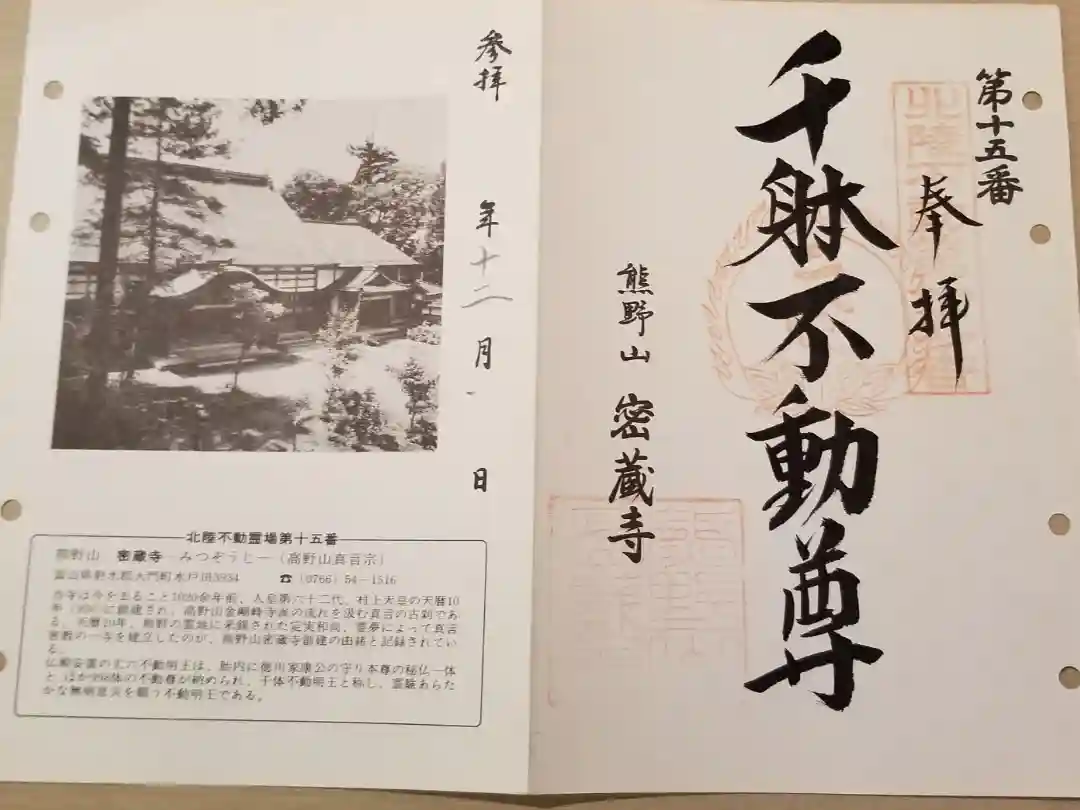 第十五番
奉拝
千躰不動尊
熊野山 密蔵寺
参拝 年十二月 日
北陸不動霊場第十五番
熊野山 密蔵寺―みつぞうじ―(高野山真言宗)
富山県射水郡大門町水戸田3934 ☎(0766)54-1516
当寺は今を去ること1020余年前、人皇第六十二代、村上天皇の天暦10
年に創建され、高野山金剛峰寺派の流れを汲む真言の古刹であ
る。天暦10年、熊野の霊地に来錫された定実和尚、霊夢によって真言
密教の一寺を建立したのが、熊野山密蔵寺創建の由緒と記録されてい
る。
仏殿安置の丈六不動明王は、胎内に徳川家康公の守り本尊の秘仏一体
と ほか998体の不動尊が納められ、千体不動明王と称し、霊験あらた
かな無病息災を願う不動明王である。